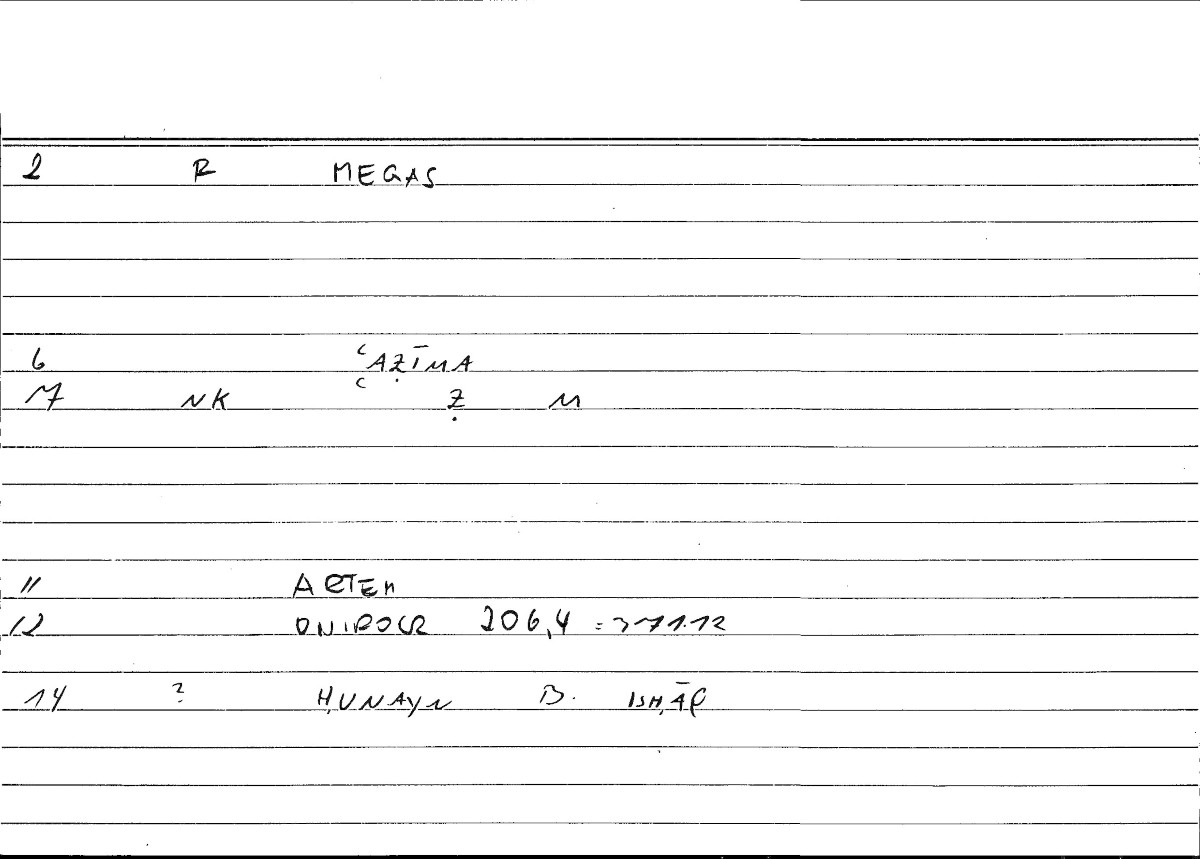 2 R MEGAS
6 ʿAẒĪMA
7 NK ʿ Ẓ M
11 ARTEM
12 ONIROCR 206,4 = 371.12
14 ? ḤUNAYN B. ISḤĀQ